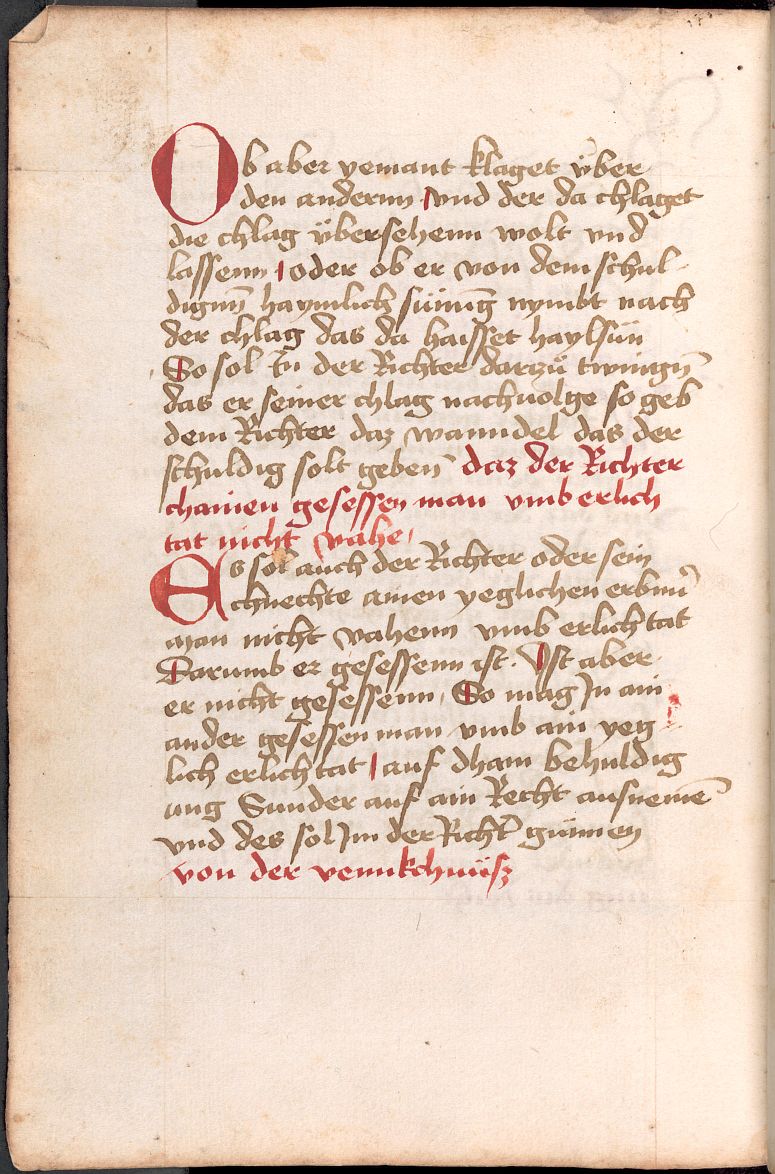 Ob aber yemant klaget über
den andernn vnd der da chlaget
die chlag übersehenn wolt vnd
lassenn oder ob er von dem schul-
dignn haymlich sünūg nymbt nach
der chlag das da haisset haylsün
So sol In der Richter darzů twingn̄
das er seiner chlag nachuolge so geb
dem Richter daz wanndel das der
schuldig solt geben̄ daz der Richter
chainen gesessen man vmb erlich
tat nicht vahe
Es sol auch der Richter oder sein
chnechte ainen yeglichen erbnn̄
man nicht vahenn vmb erlich tat
Darumb er gesessenn ist. Ist aber
er nicht gesessenn, So mag In ain
ander gesessen man vmb ain yeg
lich erlich tat auf dham behuldig
ung Sunder auf ain Recht ausnemē
vnd des sol Im der Richt̄ günnen
von der vennkchnüsz